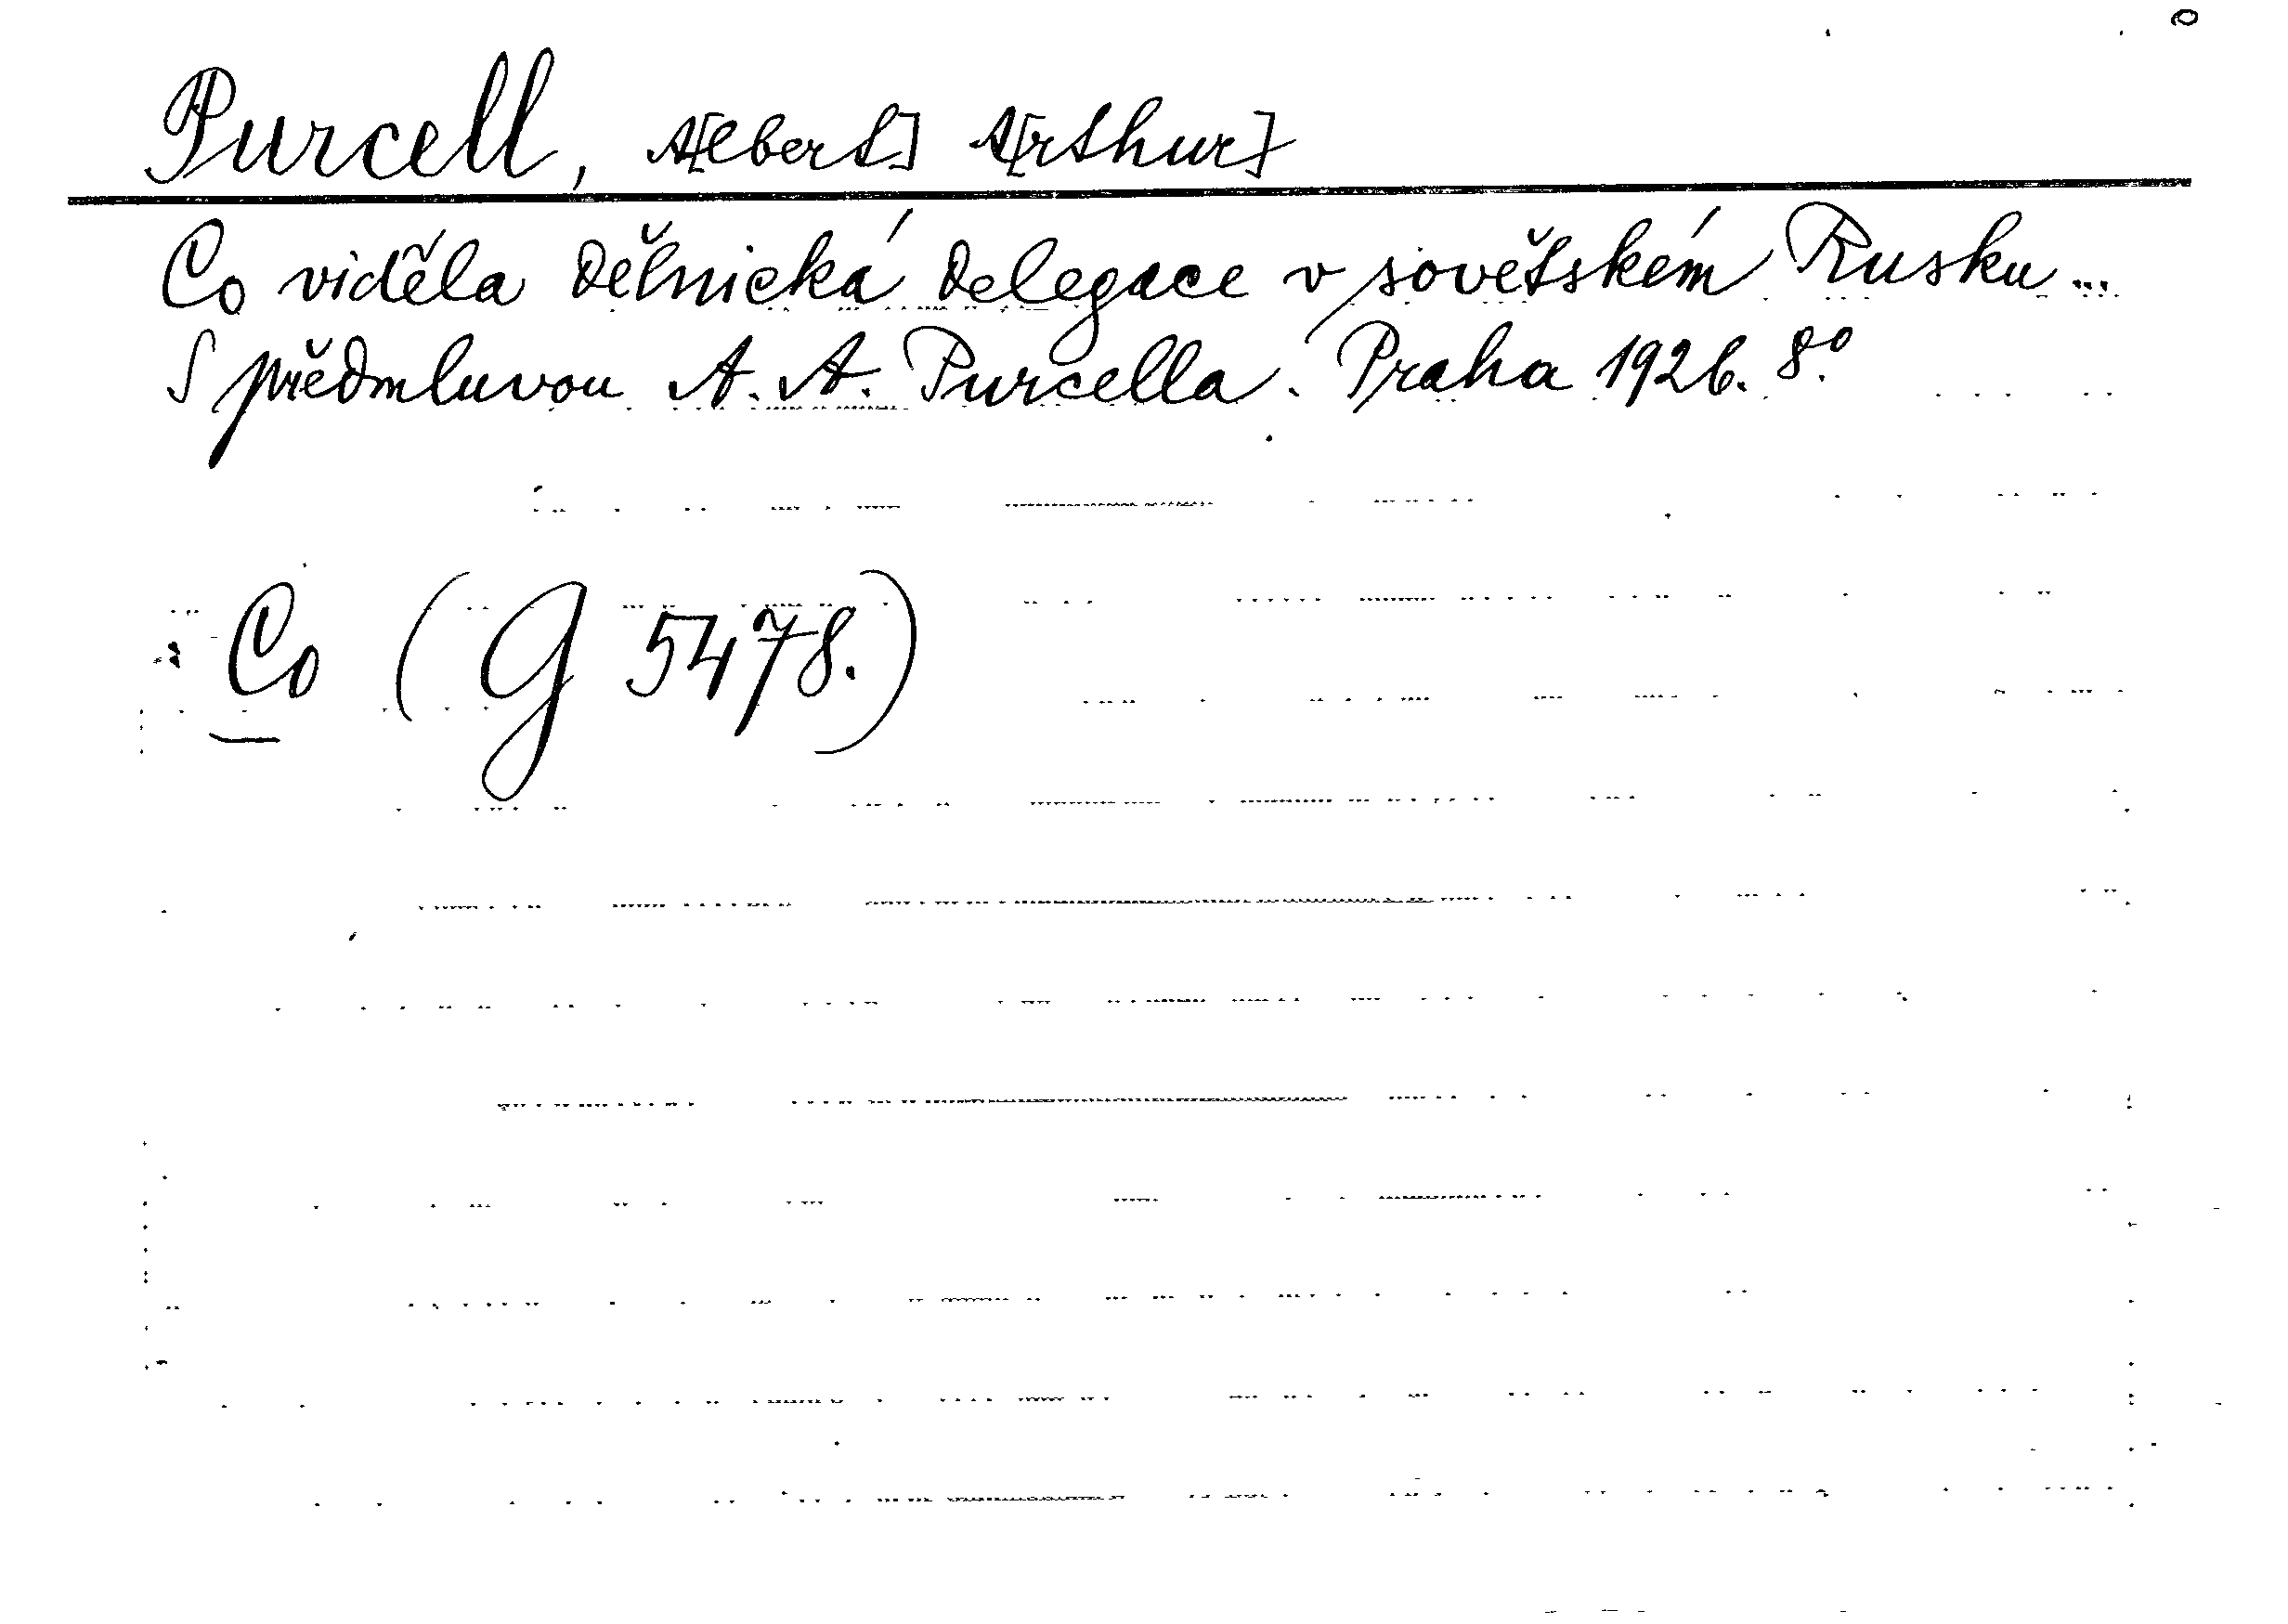 Purcell, A[lbert] A[rthur]
Co viděla dělnická delegace v sovětském Rusku...
S předmluvou A. A. Purcella. Praha 1926. 8°.
Co (G 5478.)